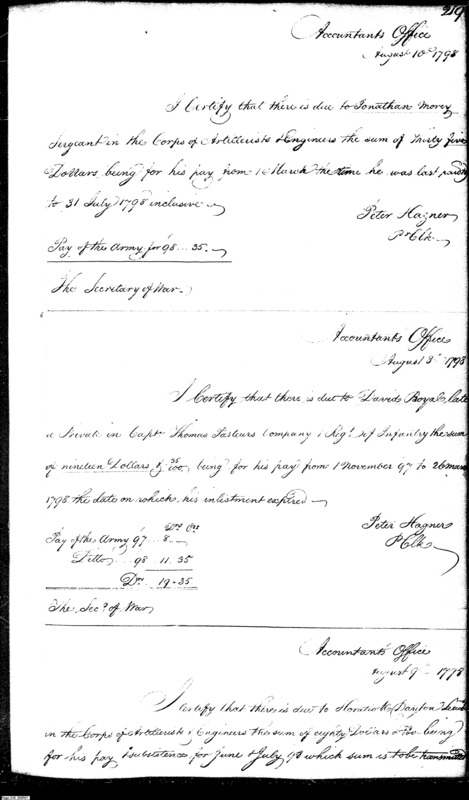 219
Accountants Office
August 10th 1798
I Certify that there is due to Jonathan Morey
Sergeant in the Corps of Artillerists & Engineers the sum of Thirty five
Dollars, being for his pay from 1t March the time he was last paid
to 31 July 1798 inclusive
Peter Hagner
Pr Clk
Pay of the Army for 98 ... 35.
The Secretary of War
Accountants Office
August 1798
I Certify that there is due to David Royal, late
a Private in Captn Thomas Pasteurs Company 1 Regt of Infantry the sum
of nineteen Dollars & 35/100, being for his pay from 1 November 97 to 26
1798 the date on which his inlistment expired
Peter Hagner
P Clk
Drs Cts
Pay of the Army 97 ... 8..
Ditto ... 98 11.35
Drs 19.35
The Secy of War
Accountants Office
August 9th 1798
I certify that there is due to Horatio Dayton
in the Corps of Artillerists & Engineers the sum of eighty Dollars being
for his pay & subsistence for June & July 98 which sum is to be transmitted